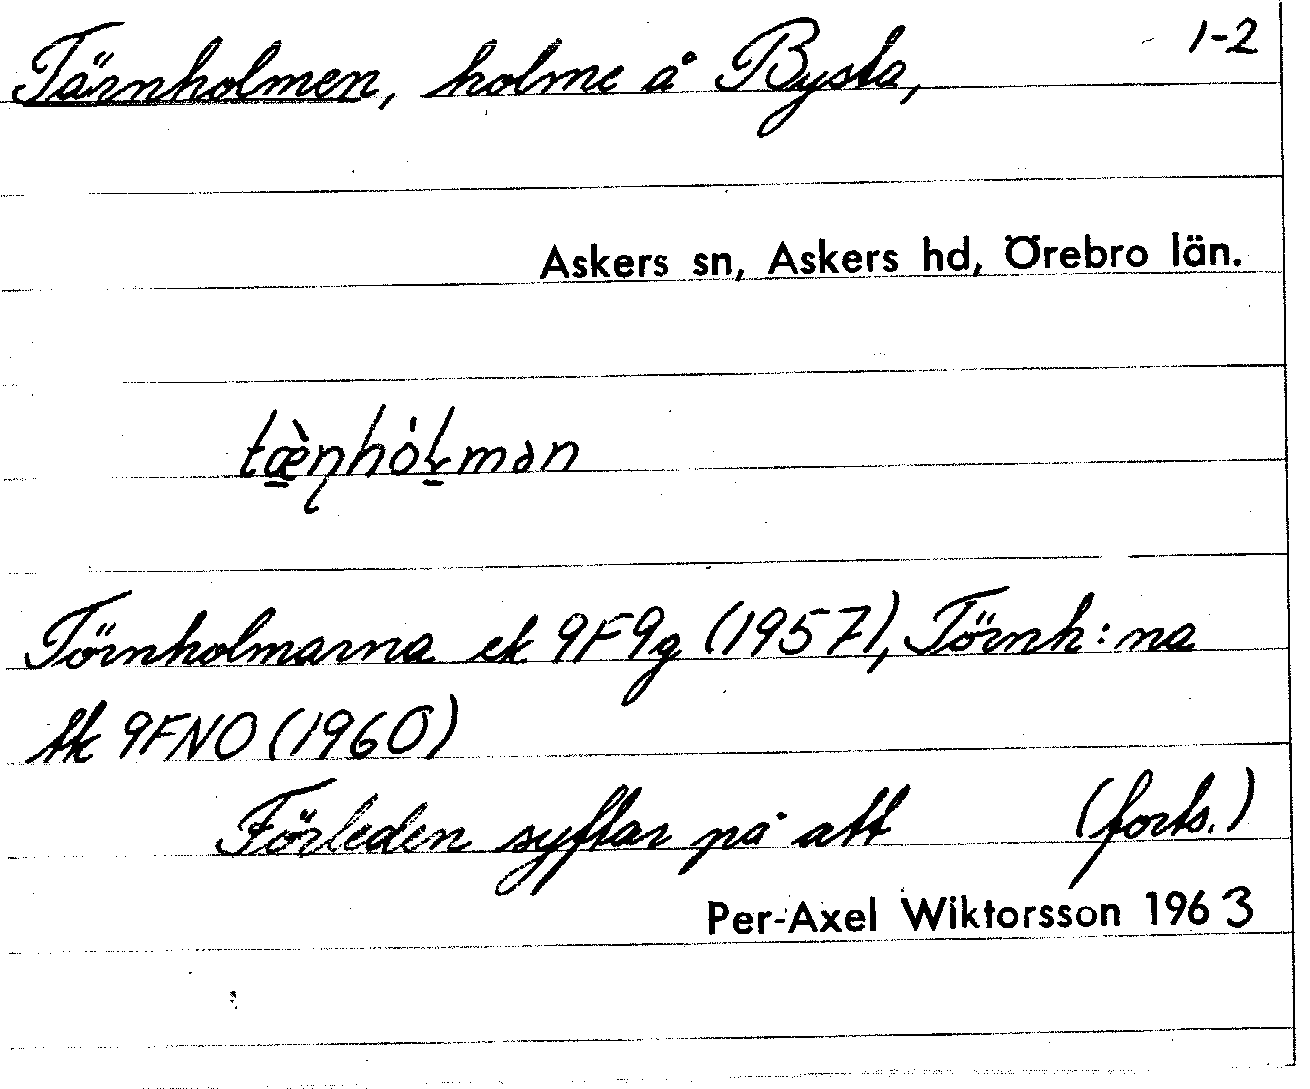 1-2
Tärnholmen, holme å Bysta,
Askers sn, Askers hd, Örebro län.
tæ̀ṇhól̥mən
Törnholmarna ek 9F9g (1957), Törnh:na
tk 9FNO (1960)
Förleden syftar på att (forts.)
Per-Axel Wiktorsson 1963